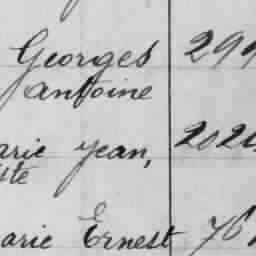 Georges 299
Antoine
arie Jean, 202
ste
arie Ernest 76